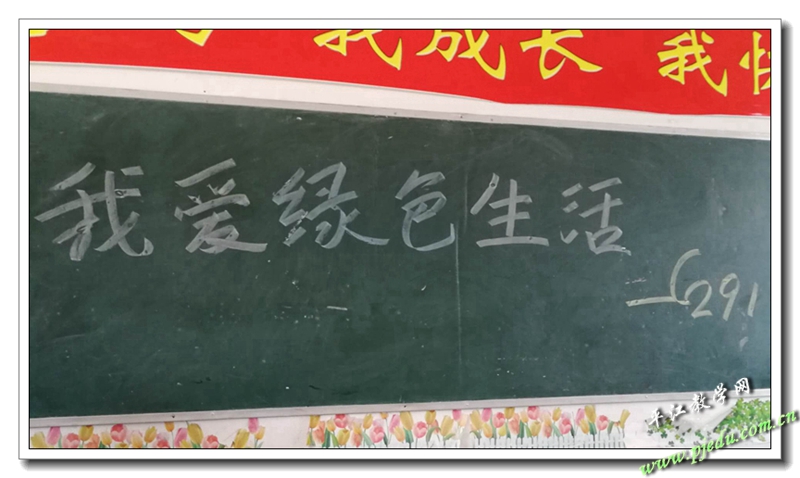 我成长 我快
我爱绿色生活
291
平江教学网
www.pjedu.com.cn